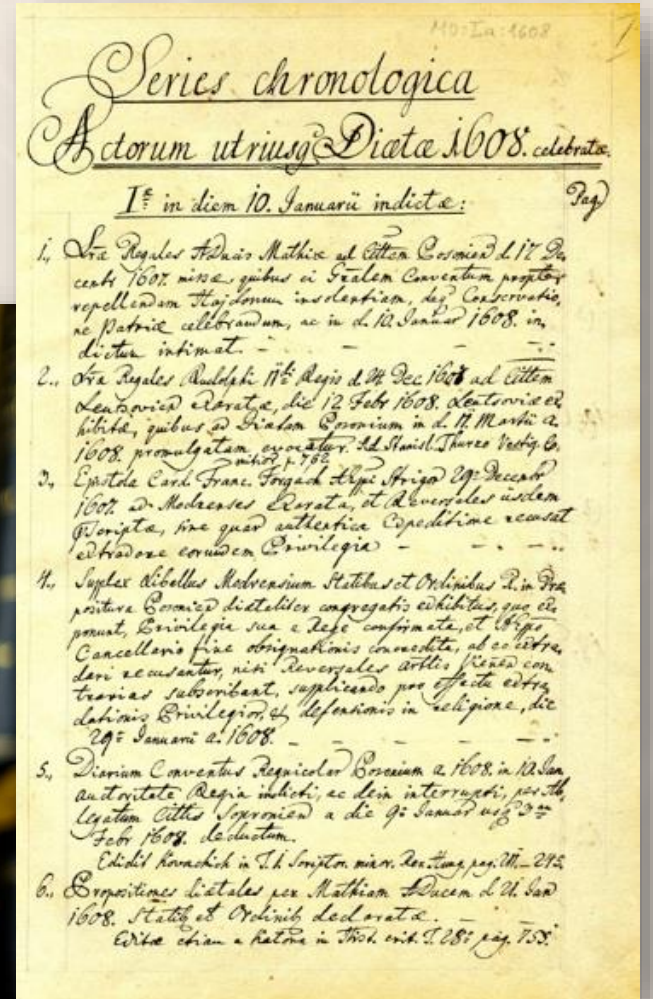 MO: I.a: 1608
Series chronologica
Actorum utriusq Diætæ 1608. celebratæ.
I.æ in diem 10. Januarii indictæ: Pag
1., Lræ Regales ADucis Mathiæ ad Cittem Posonien d 17 De
cembr 1607. missæ, quibus ei Gralem Conventum propter
repellendam Hajdonum insolentiam, deq Conservatio,
ne Patriæ celebrandum, ac in d. 10. Januar 1608. in,
dictum intimat. - - - -
2., Lræ Regales Rudolphi II.di Regis d 24 Dec 1607 ad Cittem
Leutsovien exaratæ, die 12 Febr 1608. Leutsoviæ ex
hibitæ, quibus ad Diætam Posonium in d. 11. Martii a.
1608. promulgatam evocatur. Ad Stanisl. Thurzo Vestig. Co,
mitior p. 762.
3., Epistola Card. Franc. Forgach AEppi Strigon 29a Decembr
1607. ad Modrenses exarata, et Reversales iisdem
Scriptæ, sine quar authentica Expeditione recusat
extradare eorundem Privilegia - - - -
4., Supplex Libellus Modrensium Statibus et Ordinibus R. in Præ
positura Posonien diætaliter congregatis exhibitus, quo ex
ponunt, Privilegia sua a Rege confirmata, et AEppo
Cancellario fine obsignationis concredita, ab eo extra,
dari recusantur, nisi Reversales Artlis Vienen con
trarias subscribant, supplicando pro effectu extra
dationis Privilegior, & defensionis in religione, die
29a Januarii a. 1608. - - - -
5., Diarium Conventus Regnicolar Posonium a. 1608. in 10. Jan
auctoritate Regia indicti, ac dein interrupti, per Ab,
legatum Cittis Soproniens a die 9a Januar usq 3am
Febr 1608. deductum.
Edidit Kovachich in T. I. Scriptor. minor. Rer. Hung. pag.
6., Propositiones diætales per Mathiam ADucem d 21. Jan
1608. Statib et Ordinib declaratæ. - - -
Editæ etiam a Katona in Hist. crit. T. 28o pag. 753.